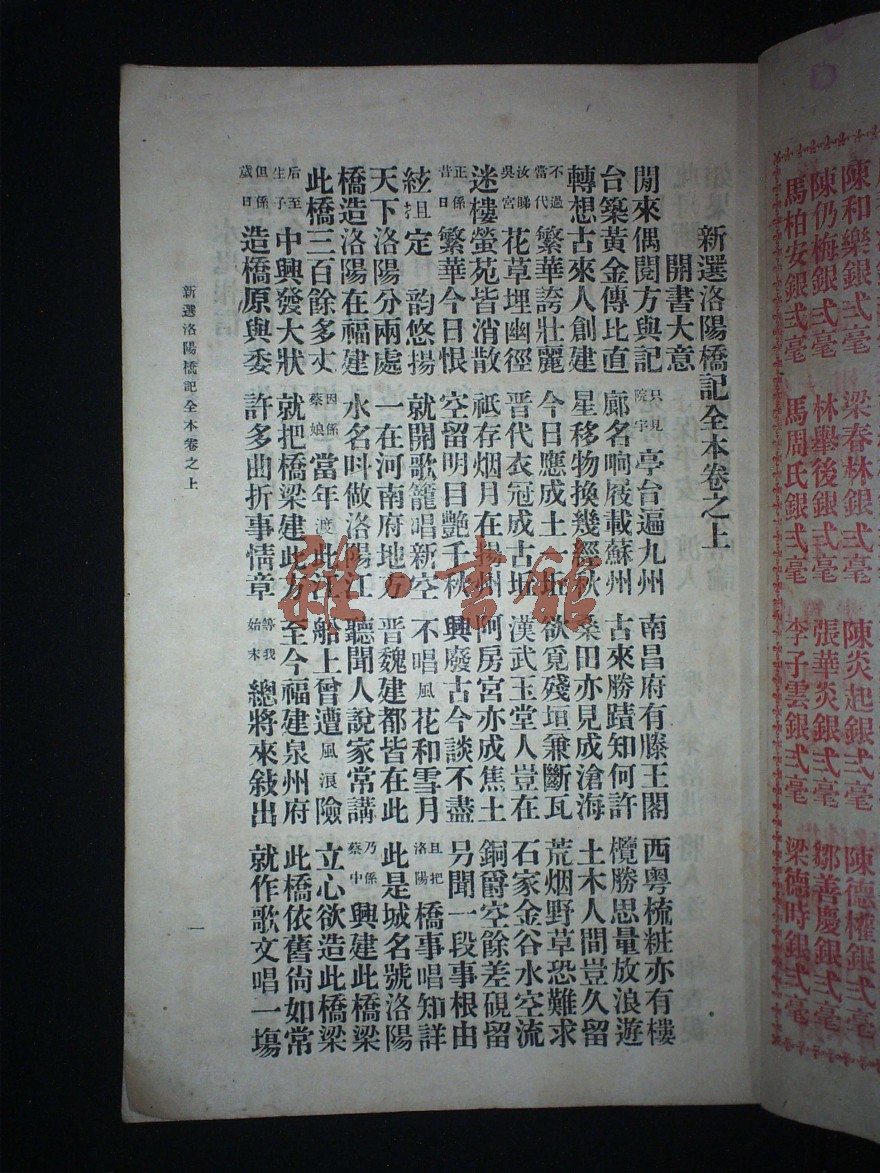 陳和樂銀弍毫 梁春林銀弍毫 陳炎起銀弍毫 陳德權銀弍毫
陳仍梅銀弍毫 林舉後銀弍毫 張華炎銀弍毫 鄒善慶銀弍毫
馬柏安銀弍毫 馬周氏銀弍毫 李子雲銀弍毫 梁德時銀弍毫
新選洛陽橋記全本卷之上
開書大意
閒來偶閱方輿記 只見院宇亭台遍九州 南昌府有滕王閣 西粵梳粧亦有樓
台築黃金傳比直 廊名响屐載蘇州 古來勝蹟知何許 欖勝思量放浪遊
轉想古來人創建 星移物換幾經秋 桑田亦見成滄海 土木人間豈久留
不過當代繁華誇壯麗 今日應成土一坵 欲覓殘垣兼斷瓦 荒烟野草恐難求
汝睇吳宮花草埋幽徑 晉代衣冠成古坵 漢武玉堂人豈在 石家金谷水空流
迷樓螢苑皆消散 祇存烟月在揚州 阿房宮亦成焦土 銅爵空餘差硯留
正係昔日繁華今日恨 空留明月艷千秋 興廢古今談不盡 另聞一段事根由
絃扭定 韵悠揚 就開歌籠唱新空 不唱風花和雪月 且把洛陽橋事唱知詳
天下洛陽分兩處 一在河南府地方 晉魏建都皆在此 此是城名號洛陽
橋造洛陽在福建 水名呌做洛陽江 聽聞人說家常講 乃係蔡中興建此橋梁
此橋三百餘多丈 因係蔡娘當年渡此江 船上曾遭風浪險 立心欲造此橋梁
后至生子中興發大狀 就把橋梁建此方 至今福建泉州府 此橋依舊尙如常
但係歲日造橋原與委 許多曲折事情章 等我始末總將來敍出 就作歌文唱一塲
新選洛陽橋記全本卷之上 一
書館